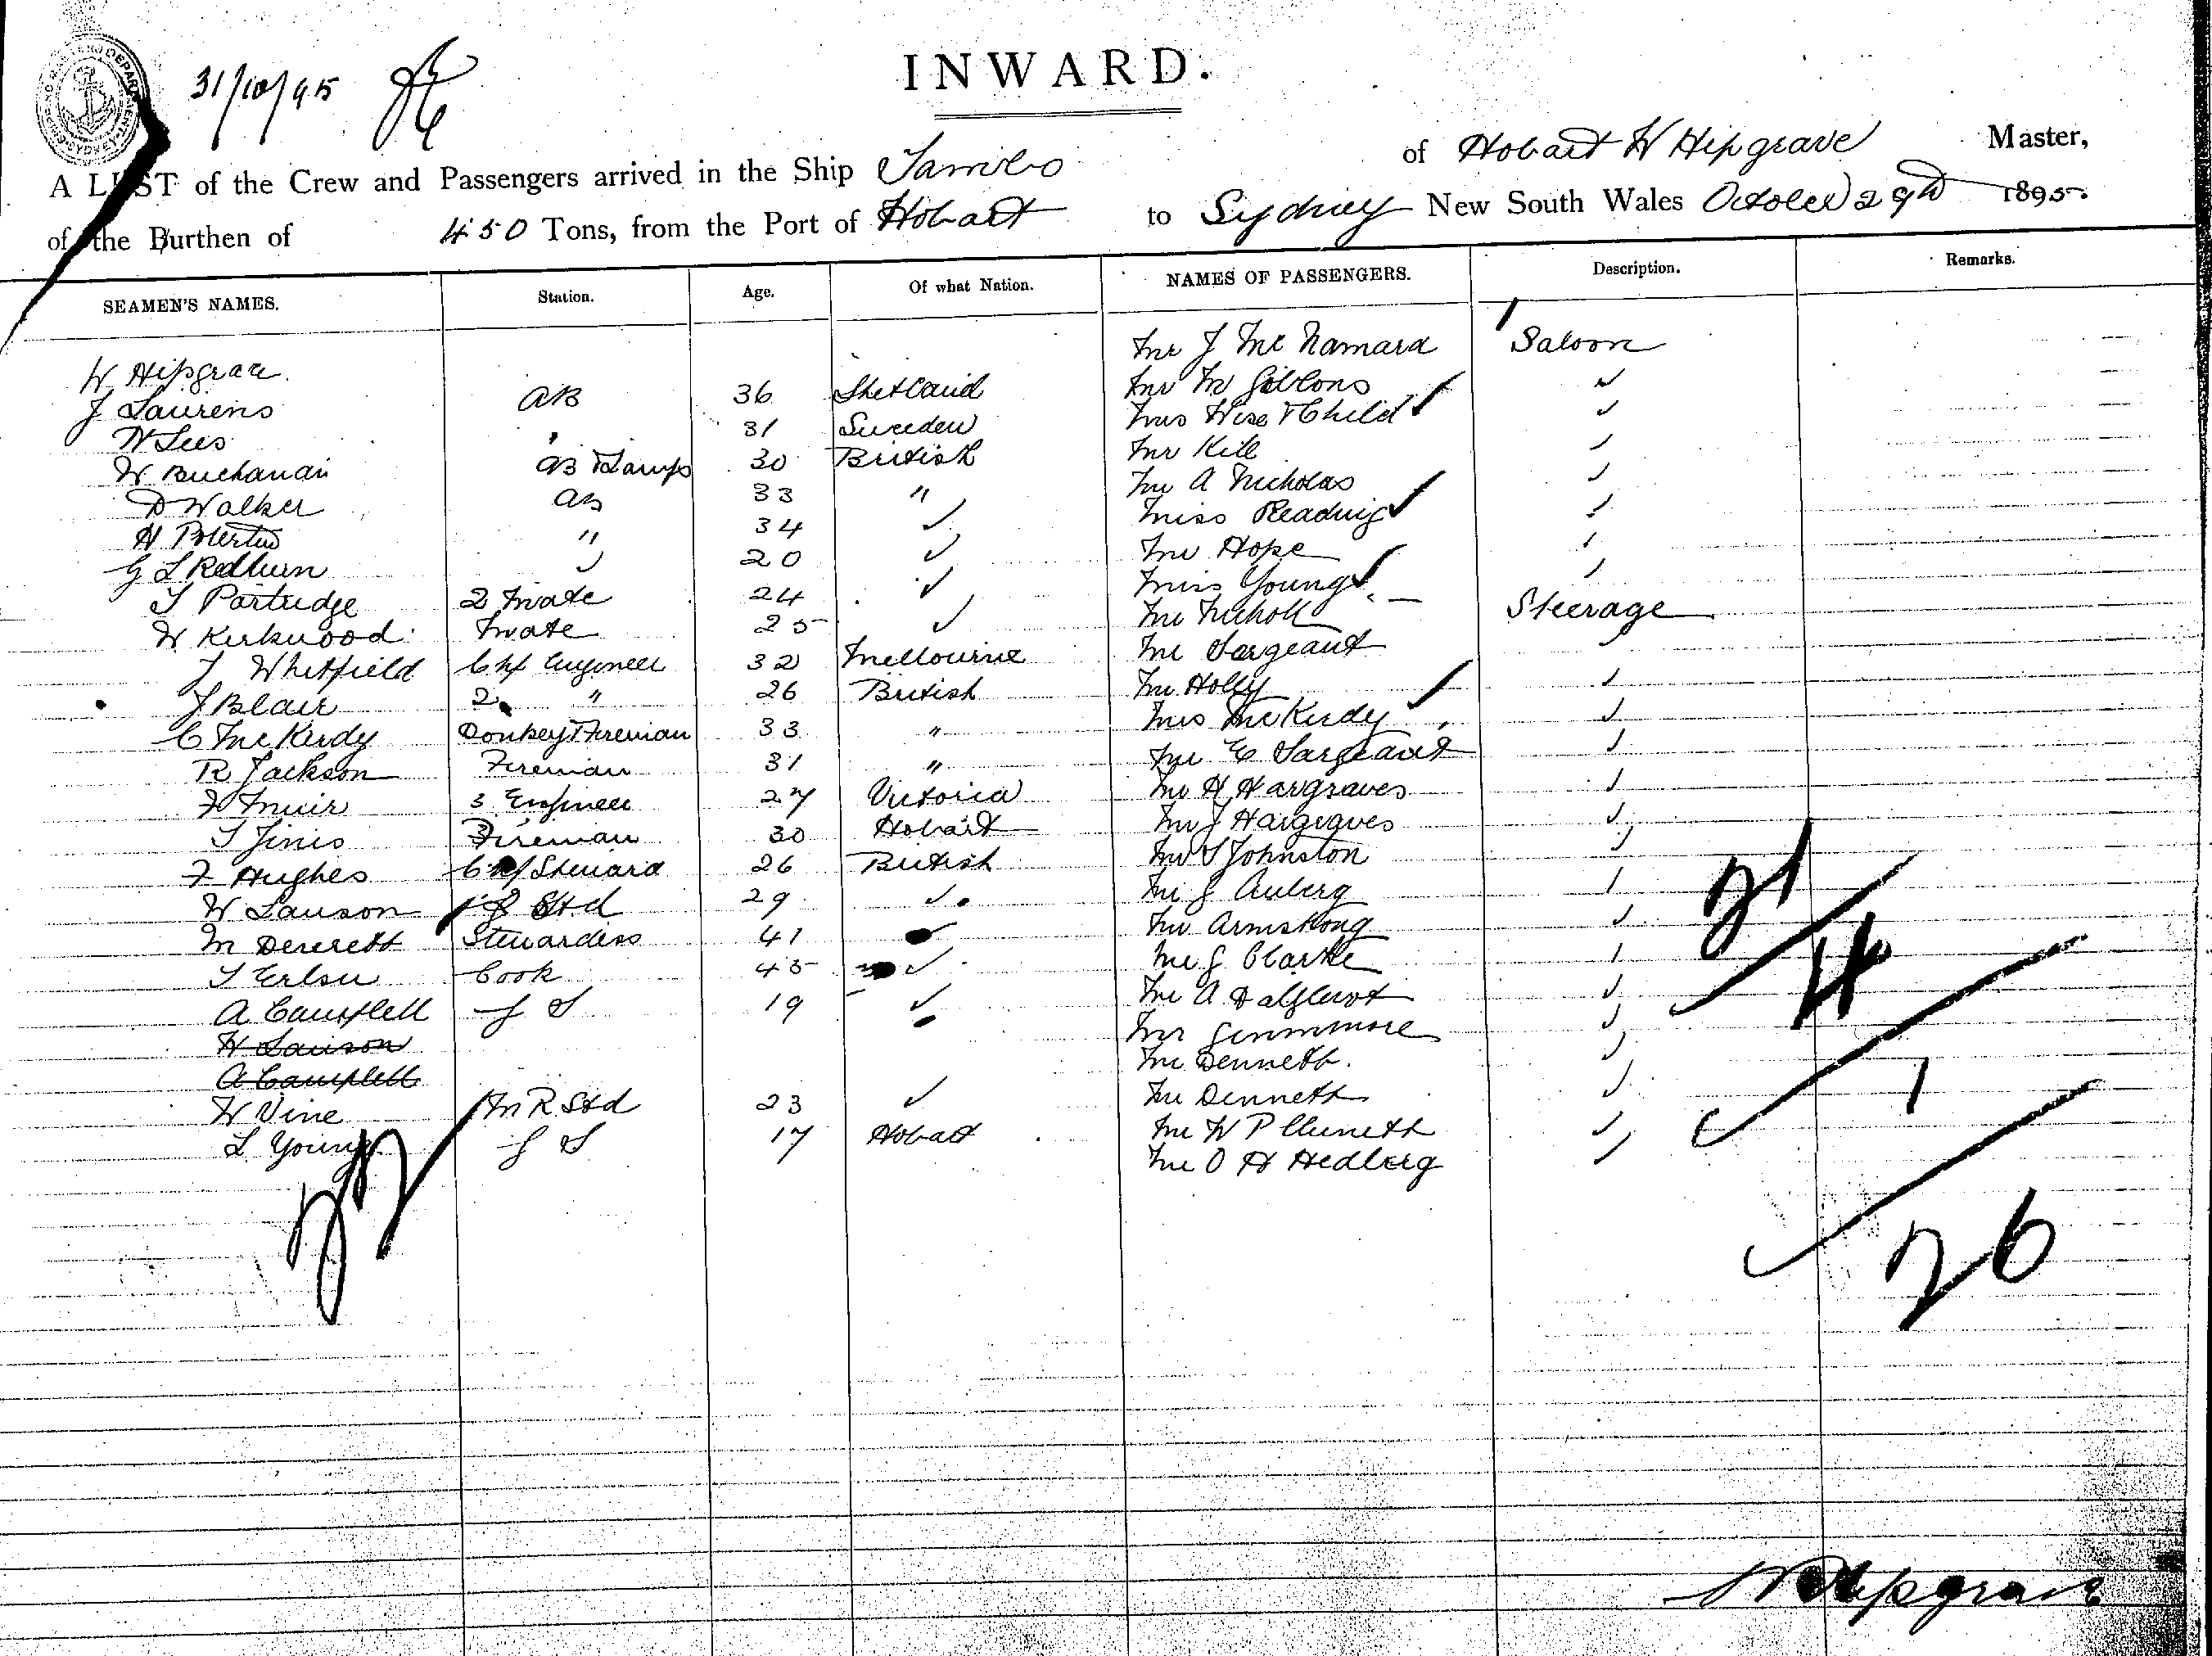 31/10/95
INWARD.
A LIST of the Crew and Passengers arrived in the Ship Tambo of Hobart W Hipgrave Master,
of the Burthen of 450 Tons, from the Port of Hobart to Sydney New South Wales October 29th 1895.
SEAMEN'S NAMES. Station. Age. Of what Nation. NAMES OF PASSENGERS. Description. Remarks.
Mr J McNamara Saloon
W Hipgrave
J Laurens AB 36 Shetland Mr M Gibbons ✓
W Lees 31 Sweden Mrs Wise & Child ✓
W Buchanan AB & Lamps 30 British Mr Kill ✓
D Walker AB 33 " Mr A Nicholas ✓
H " 34 ✓ Miss Reading ✓
G L Redburn ✓ 20 ✓ Mr Hope ✓
T Partridge 2 Mate 24 ✓ Miss Young ✓
W Kirkwood Mate 25 ✓ Mr Nicholl Steerage
J Whitfield Chf Engineer 32 Melbourne Mr Sargeant ✓
J Blair 2 " 26 British Mr Holly ✓
C McKerdy Donkey & Fireman 33 " Mrs McKerdy ✓
R Jackson Fireman 31 " Mr E Sargeant ✓
F Muir 3 Engineer 27 Victoria Mr H Hargraves ✓
T Jinis Fireman 30 Hobart Mr J Hargraves ✓
F Hughes Chf Steward 26 British Mr T Johnston ✓
W Lawson 2 Std 29 ✓ Mr J Auberg ✓
M Stewardess 41 ✓ Mr Armstrong ✓
T Cook 45 ✓ Mr J Clarke ✓
A Campbell 19 ✓ Mr A ✓
W Lawson Mr ✓
A Campbell Mr Dennett ✓
W Vine M R Std 23 ✓ Mr Dennett ✓
L Young 17 Hobart Mr W P ✓
Mr O H Hedberg ✓
21
4
1
26
22
W Hipgrave